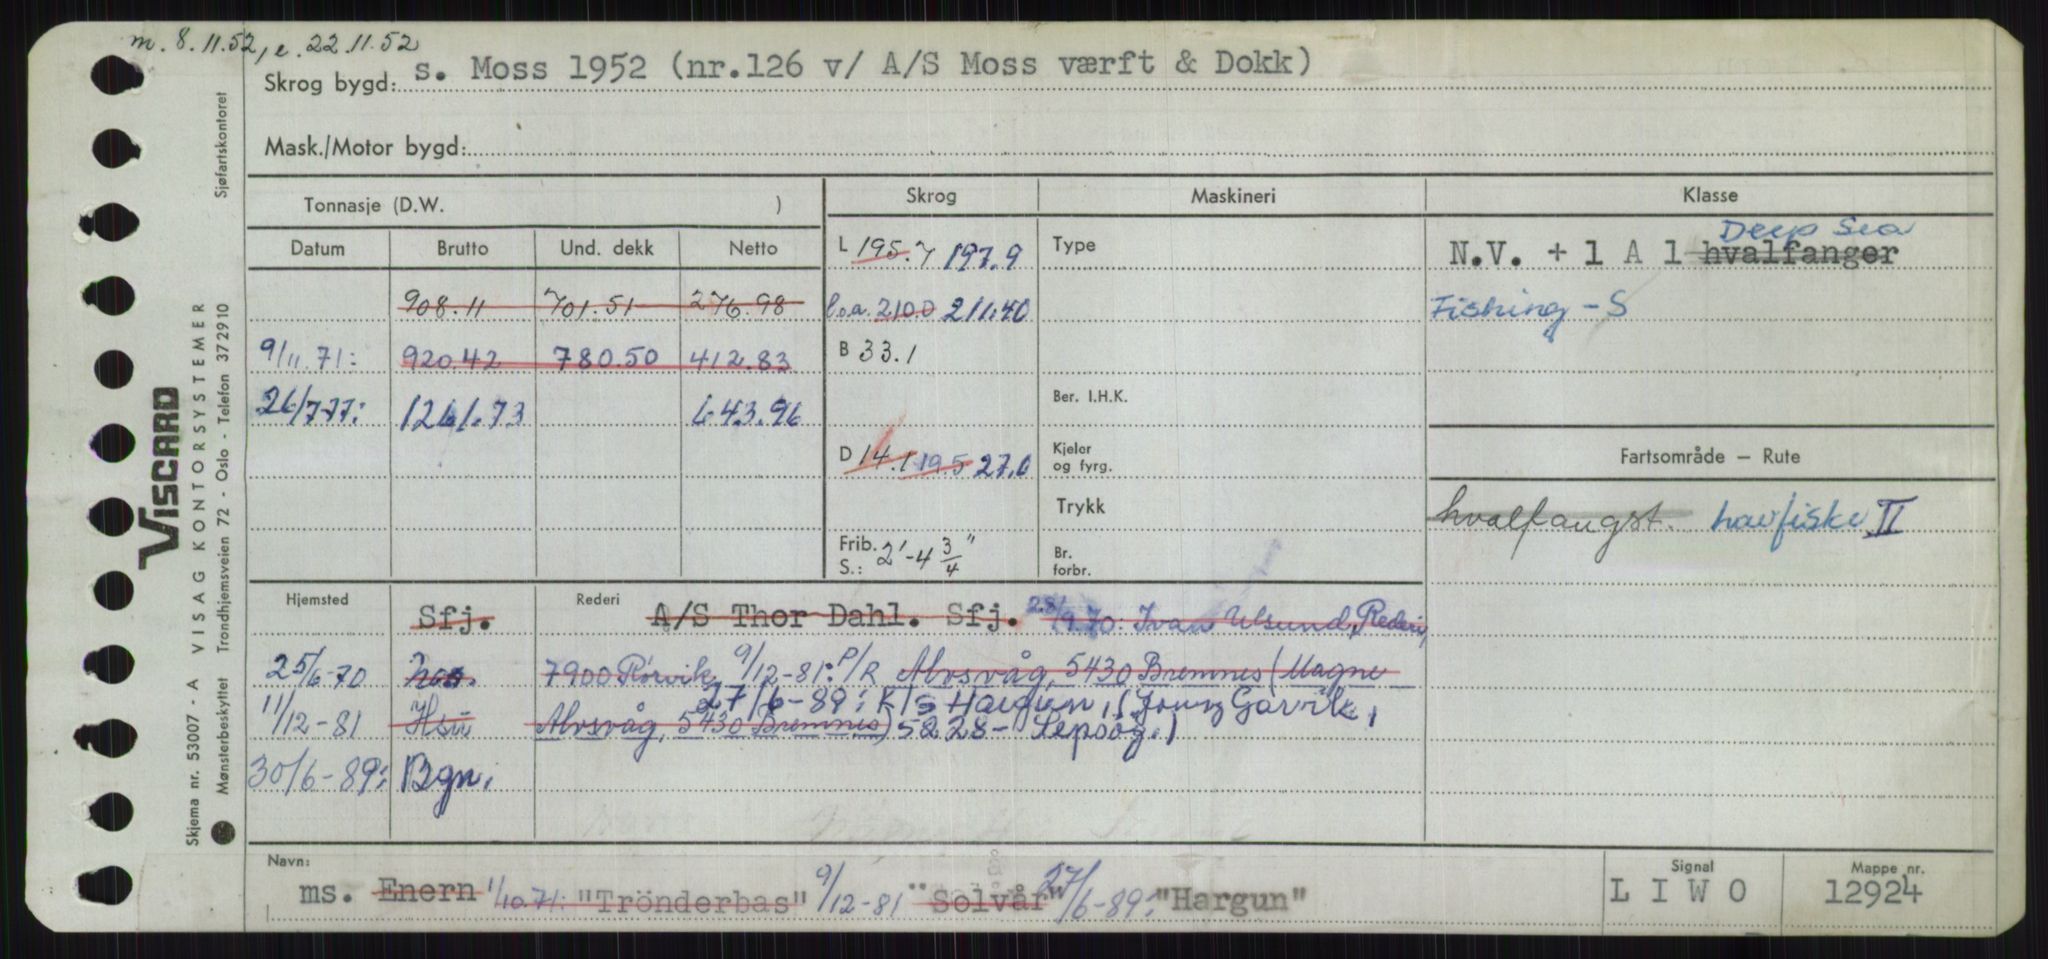 m. 8.11.52, e. 22.11.52
Skrog bygd: s. Moss 1952 (nr.126 v/ A/S Moss værft & Dokk)
Mask./Motor bygd:
Tonnasje (D.W. )
Skrog
Maskineri
Klasse
Datum Brutto Und. dekk Netto
908.11 701.51 276.98
9/11.71: 920.42 780.50 412.83
26/7-77: 1261.73 643.96
L 195.7 197.9
l.o.a. 210.0 211.40
B 33.1
D 14.1 19.5 27.0
Frib. S.: 2'-4 3/4"
Type
Ber. I.H.K.
Kjeler
og fyrg.
Trykk
Br.
forbr.
Deep Sea
N.V. + 1 A 1 hvalfanger
Fishing - S
Fartsområde — Rute
hvalfangst. havfiske II
Hjemsted Sfj. Rederi A/S Thor Dahl. Sfj. 28/9.70: Ivan Ulsund, Rederi,
25/6-70 7900 Rørvik 9/12-81: P/R Alvsvåg, 5430 Bremnes (Magne
27/6-89: K/S Hargun, (Jonny Garvik,
11/12-81 Alvsvåg, 5430 Bremnes) 5228-
30/6-89: Bgn.
Navn:
ms. Enern 1/10 71: "Trönderbas" 9/12-81 "Solvår" 27/6-89: "Hargun"
Signal
L I W O
Mappe nr.
12924
Sjøfartskontoret
VISCARD
VISAG KONTORSYSTEMER
Trondhjemsveien 72 - Oslo - Telefon 372910
Skjema nr. 53007 - A
Mønsterbeskyttet